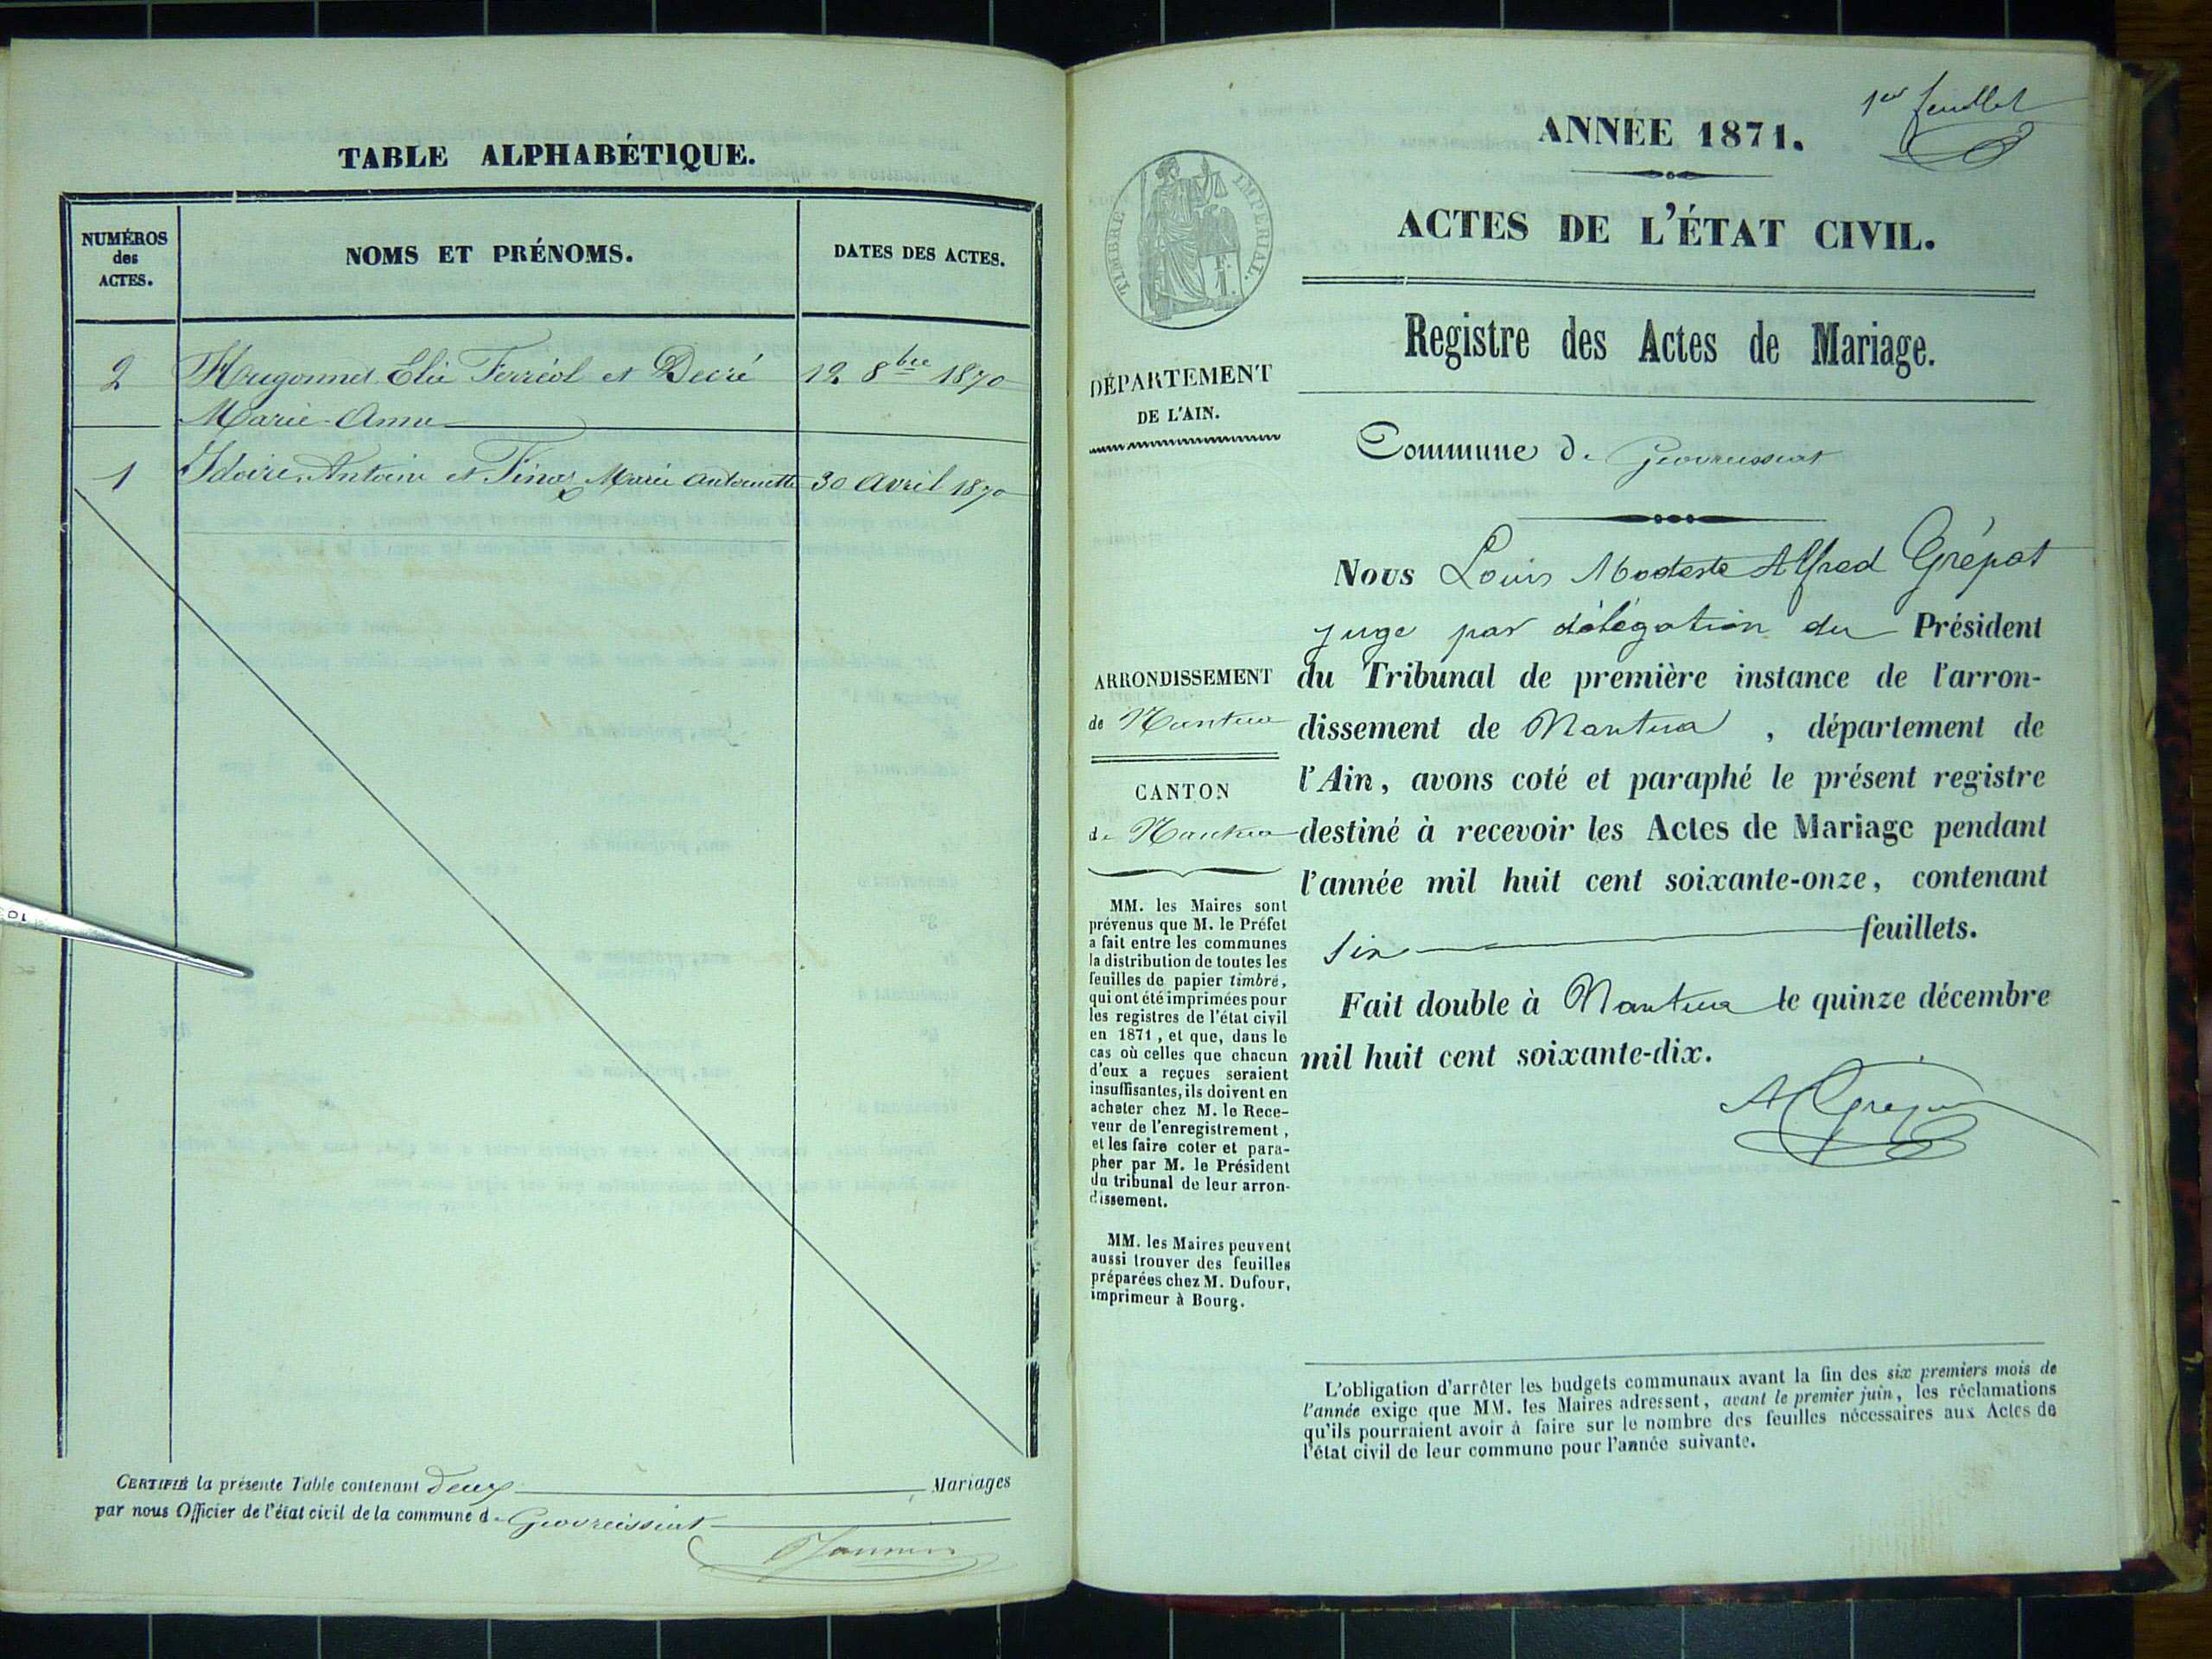 TABLE ALPHABÉTIQUE.
NUMÉROS
des
ACTES.
NOMS ET PRÉNOMS.
DATES DES ACTES.
2 Hugonnet Elie Ferréol et Decré 12 8bre 1870
Marie-Anne
1 Idoire Antoine et Marie Antoinette 30 Avril 1870
CERTIFIÉ la présente Table contenant deux Mariages
par nous Officier de l'état civil de la commune de Geovreissiat
1er feuillet
ANNÉE 1871.
ACTES DE L'ÉTAT CIVIL.
TIMBRE IMPERIAL.
Registre des Actes de Mariage.
DÉPARTEMENT
DE L'AIN.
Commune de Geovreissiat
Nous Louis Modeste Alfred Grépat
juge par délégation du Président
du Tribunal de première instance de l'arron-
dissement de Nantua, département de
l'Ain, avons coté et paraphé le présent registre
destiné à recevoir les Actes de Mariage pendant
l'année mil huit cent soixante-onze, contenant
six feuillets.
Fait double à Nantua le quinze décembre
mil huit cent soixante-dix.
ARRONDISSEMENT
de Nantua
CANTON
de Nantua
MM. les Maires sont
prévenus que M. le Préfet
a fait entre les communes
la distribution de toutes les
feuilles de papier timbré,
qui ont été imprimées pour
les registres de l'état civil
en 1871, et que, dans le
cas où celles que chacun
d'eux a reçues seraient
insuffisantes, ils doivent en
acheter chez M. le Rece-
veur de l'enregistrement,
et les faire coter et para-
pher par M. le Président
du tribunal de leur arron-
dissement.
MM. les Maires peuvent
aussi trouver des feuilles
préparées chez M. Dufour,
imprimeur à Bourg.
L'obligation d'arrêter les budgets communaux avant la fin des six premiers mois de
l'année exige que MM. les Maires adressent, avant le premier juin, les réclamations
qu'ils pourraient avoir à faire sur le nombre des feuilles nécessaires aux Actes de
l'état civil de leur commune pour l'année suivante.